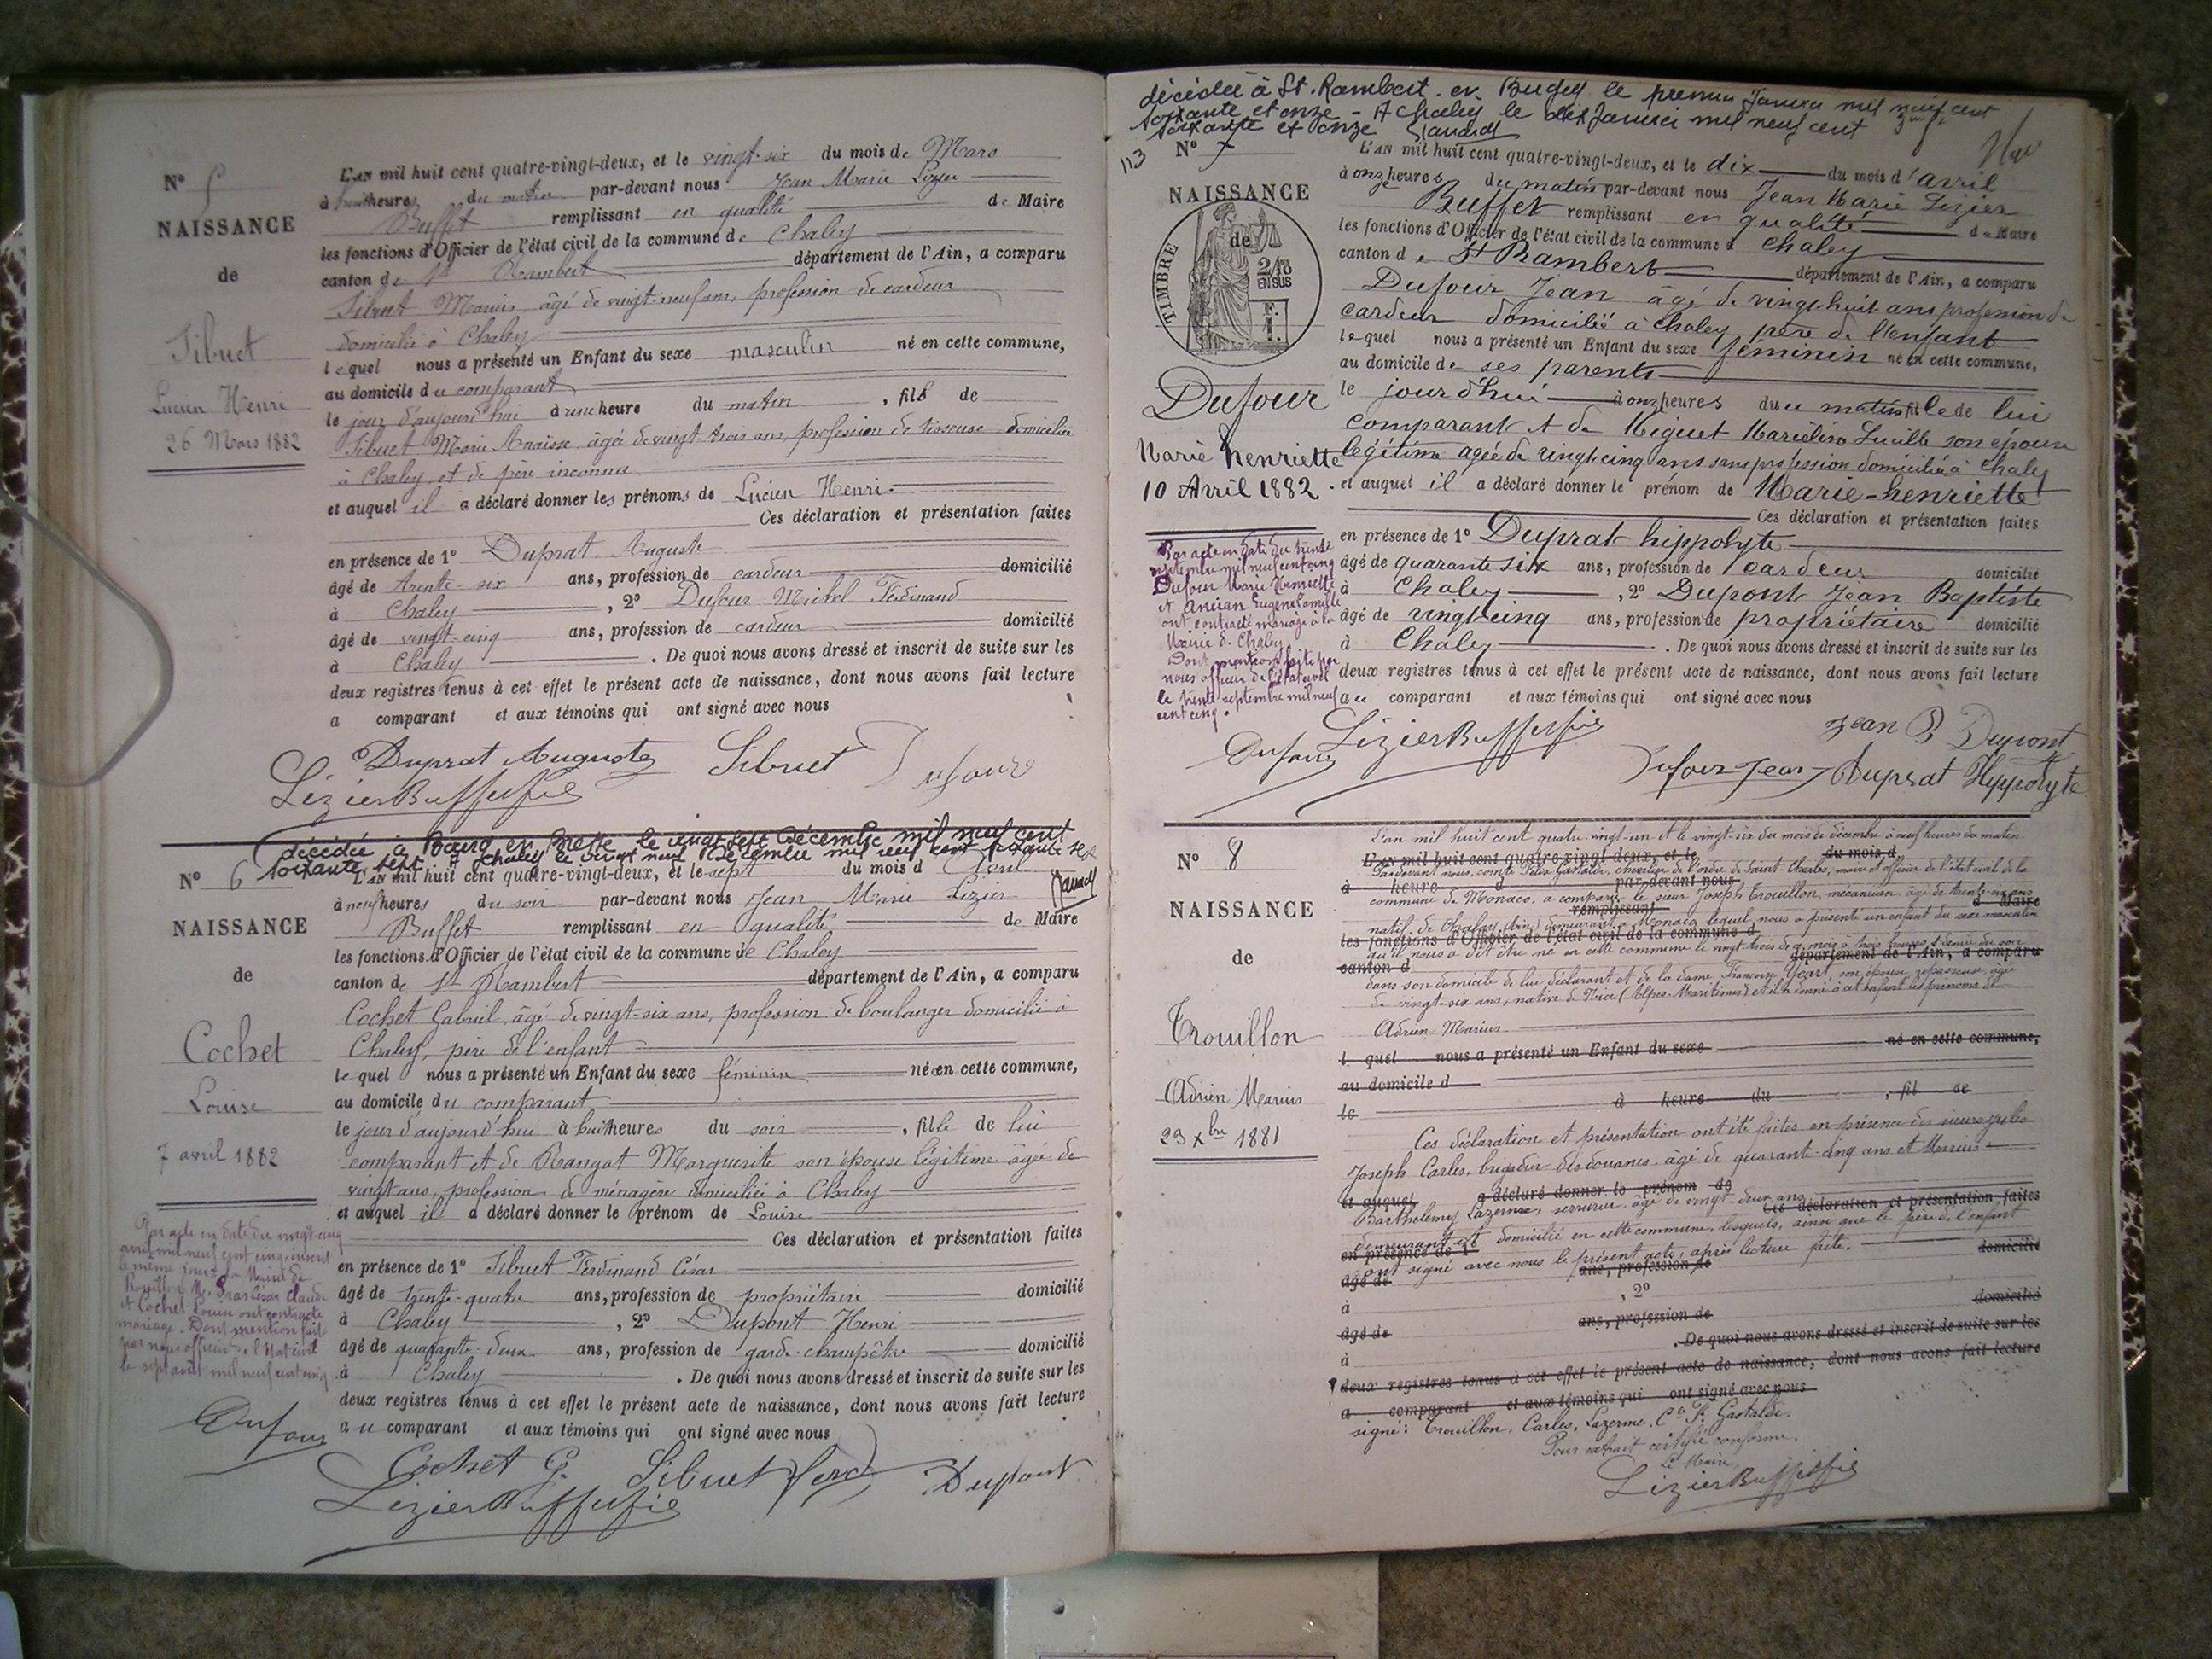 N° 5
NAISSANCE
de
Sibuet
Lucien Henri
26 Mars 1882
L'AN mil huit cent quatre-vingt-deux, et le vingt-six du mois de Mars
à heures du matin par-devant nous Jean Marie Lizier
Buffet remplissant en qualité de Maire
les fonctions d'Officier de l'état civil de la commune de Chaley
canton de St Rambert département de l'Ain, a comparu
Sibuet Marius, âgé de vingt-neuf ans, profession de cardeur
domicilié à Chaley
lequel nous a présenté un Enfant du sexe masculin né en cette commune,
au domicile du comparant
le jour d'aujourd'hui à une heure du matin, fils de
Sibuet Marie Anaïse, âgée de vingt-trois ans, profession de tisseuse domiciliée
à Chaley et de père inconnu
et auquel il a déclaré donner les prénoms de Lucien Henri.
Ces déclaration et présentation faites
en présence de 1° Duprat Auguste
âgé de trente-six ans, profession de cardeur domicilié
à Chaley, 2° Dufour Michel Ferdinand
âgé de vingt-cinq ans, profession de cardeur domicilié
à Chaley. De quoi nous avons dressé et inscrit de suite sur les
deux registres tenus à cet effet le présent acte de naissance, dont nous avons fait lecture
a comparant et aux témoins qui ont signé avec nous
Duprat Auguste Sibuet Dufour
Lizier Buffet fils
décédée à Bourg en Bresse le vingt sept Décembre mil neuf cent
soixante sept. A Chaley le vingt neuf Décembre mil neuf cent soixante sept
N° 6
NAISSANCE
de
Cochet
Louise
7 avril 1882
L'AN mil huit cent quatre-vingt-deux, et le sept du mois d'Avril
à neuf heures du soir par-devant nous Jean Marie Lizier
Buffet remplissant en qualité de Maire
les fonctions d'Officier de l'état civil de la commune de Chaley
canton de St Rambert département de l'Ain, a comparu
Cochet Gabriel, âgé de vingt-six ans, profession de boulanger domicilié à
Chaley, père de l'enfant
lequel nous a présenté un Enfant du sexe féminin né en cette commune,
au domicile du comparant
le jour d'aujourd'hui à huit heures du soir, fille de lui
comparant et de Mangot Marguerite son épouse légitime âgée de
vingt ans, profession de ménagère domiciliée à Chaley
et auquel il a déclaré donner le prénom de Louise
Ces déclaration et présentation faites
en présence de 1° Sibuet Ferdinand César
âgé de trente-quatre ans, profession de propriétaire domicilié
à Chaley, 2° Dupont Henri
âgé de quarante-deux ans, profession de garde-champêtre domicilié
à Chaley. De quoi nous avons dressé et inscrit de suite sur les
deux registres tenus à cet effet le présent acte de naissance, dont nous avons fait lecture
au comparant et aux témoins qui ont signé avec nous
Par acte en date du vingt-cinq
avril mil neuf cent cinq inscrit
le même jour à la Mairie de
Claude
et Cochet Louise ont contracté
mariage. Dont mention faite
par nous officier de l'état civil
le sept août mil neuf cent cinq
Dufour
Cochet G. Sibuet ferd Dupont
Lizier Buffet fils
décédée à St. Rambert en Bugey le premier Janvier mil neuf cent
soixante et onze - A Chaley le dix Janvier mil neuf cent
soixante et onze
113
N° 7
NAISSANCE
de
TIMBRE
2/10
EN SUS
Dufour
Marie Henriette
10 Avril 1882.
L'AN mil huit cent quatre-vingt-deux, et le dix du mois d'avril
à onze heures du matin par-devant nous Jean Marie Lizier
Buffet remplissant en qualité de Maire
les fonctions d'Officier de l'état civil de la commune d Chaley
canton de St Rambert département de l'Ain, a comparu
Dufour Jean âgé de vingt-huit ans profession de
cardeur domicilié à Chaley, père de l'enfant
lequel nous a présenté un Enfant du sexe féminin né en cette commune,
au domicile de ses parents
le jour d'hui à onze heures du matin fille de lui
comparant et de Miguet Marcéline Lucille son épouse
légitime agée de vingt-cinq ans sans profession domiciliée à Chaley
et auquel il a déclaré donner le prénom de Marie-henriette
Ces déclaration et présentation faites
en présence de 1° Duprat hippolyte
âgé de quarante six ans, profession de cardeur domicilié
à Chaley, 2° Dupont Jean Baptiste
âgé de vingt-cinq ans, profession de propriétaire domicilié
à Chaley. De quoi nous avons dressé et inscrit de suite sur les
deux registres tenus à cet effet le présent acte de naissance, dont nous avons fait lecture
au comparant et aux témoins qui ont signé avec nous
Par acte en date du trente
septembre mil neuf cent cinq
Dufour Marie Henriette
et Ancian Eugène Camille
ont contracté mariage à la
Mairie de Chaley
Dont mention faite par
nous officier de l'état civil
le trente septembre mil neuf
cent cinq.
Dufour Lizier Buffet fils Jean B Dupont
Dufour Jean Duprat Hyppolyte
N° 8
NAISSANCE
de
Trouillon
Adrien Marius
23 Xbre 1881
L'an mil huit cent quatre-vingt-un et le vingt-six du mois de décembre à neuf heures du matin
L'AN mil huit cent quatre-vingt-deux, et le du mois d
Pardevant nous, comte Gastaldi, chevalier de l'ordre de Saint Charles, maire et officier de l'état civil de la
à heure d par-devant nous
commune de Monaco, a comparu le sieur Joseph Trouillon, mécanicien, âgé de trente-six ans
remplissant d Maire
natif de (Ain) demeurant à Monaco, lequel nous a présenté un enfant du sexe masculin
les fonctions d'Officier de l'état civil de la commune d
qu'il nous a dit être né en cette commune le vingt-trois de ce mois à trois heures et demie du soir
canton d département de l'Ain, a comparu
dans son domicile de lui déclarant et de la dame Françoise Ycart, son épouse, repasseuse, âgée
de vingt-six ans, native de Nice (Alpes-Maritimes) et il a donné à cet enfant les prénoms de
Adrien Marius
l quel nous a présenté un Enfant du sexe né en cette commune,
au domicile d
le à heure du, fil de
Ces déclaration et présentation ont été faites en présence des sieurs
Joseph Carles, brigadier des douanes, âgé de quarante-cinq ans et Marius
et auquel a déclaré donner le prénom de
Barthélemy Lazerme, serrurier, âgé de vingt-deux ans
Ces déclaration et présentation faites
demeurant et domicilié en cette commune, lesquels, ainsi que le père de l'enfant
en présence de 1° domicilié
ont signé avec nous le présent acte, après lecture faite.
âgé de ans, profession de
à, 2°
âgé de ans, profession de domicilié
à. De quoi nous avons dressé et inscrit de suite sur les
deux registres tenus à cet effet le présent acte de naissance, dont nous avons fait lecture
a comparant et aux témoins qui ont signé avec nous
signé: Trouillon, Carles, Lazerme, Cte F. Gastaldi.
Pour extrait certifié conforme.
Le Maire,
Lizier Buffet fils